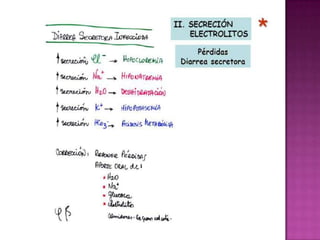 II. SECRECIÓN
ELECTROLITOS
Pérdidas
Diarrea secretora
DIARREA SECRETORA INFECCIOSA
↑ secreción Cl⁻ → HIPOCLOREMIA
↑ secreción Na⁺ → HIPONATREMIA
↑ secreción H2O → DESHIDRATACIÓN
↑ secreción K⁺ → HIPOPOTASEMIA
↑ secreción HCO3⁻ → ACIDOSIS METABÓLICA
CORRECCIÓN: REPONER PÉRDIDAS,
APORTE ORAL de:
• H2O
• Na⁺
• glucosa